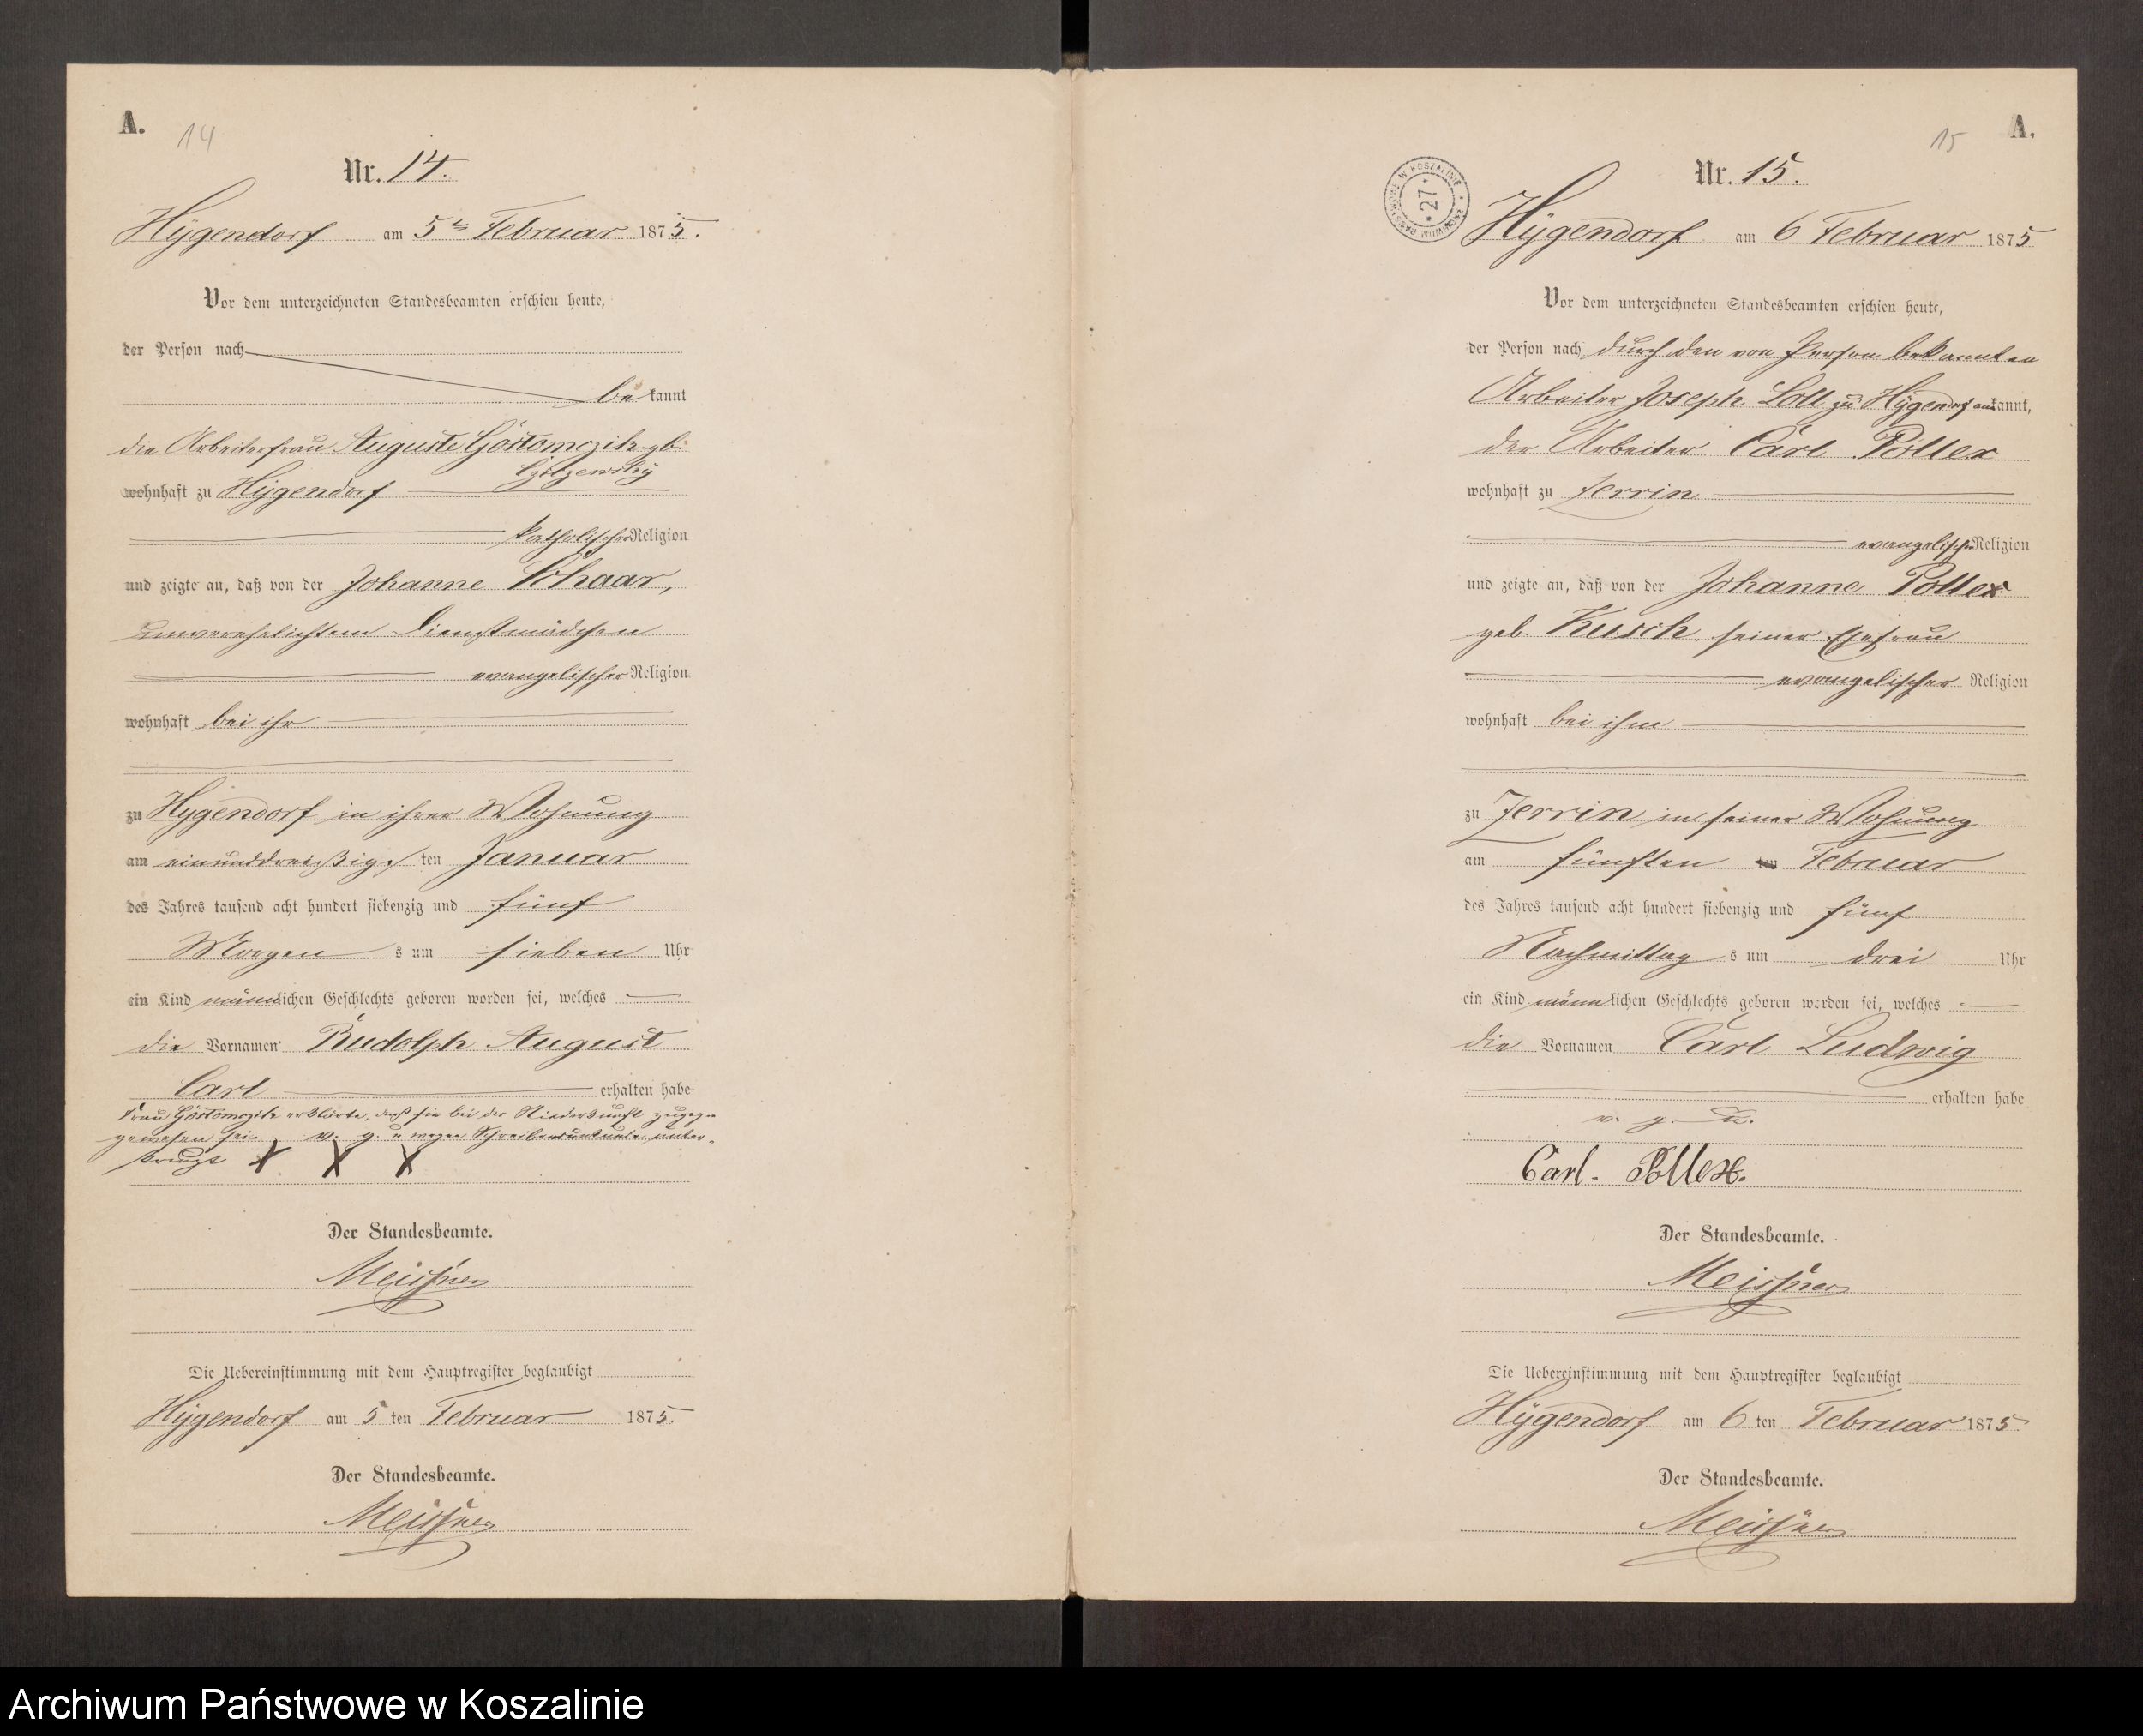 A. 14
Nr. 14.
Hygendorf am 5ten Februar 1875.
Vor dem unterzeichneten Standesbeamten erschien heute,
der Person nach
bekannt
die Arbeiterfrau Auguste Gostomczik gb.
wohnhaft zu Hygendorf
katholischer Religion
und zeigte an, daß von der Johanne Schaar,
unverehelichtem Dienstmädchen
evangelischer Religion
wohnhaft bei ihr
zu Hygendorf in ihrer Wohnung
am einunddreißigs ten Januar
des Jahres tausend acht hundert siebenzig und fünf
Morgen s um sieben Uhr
ein Kind männlichen Geschlechts geboren worden sei, welches
die Vornamen Rudolph August
Carl erhalten habe
Frau Gostomczik erklärte, daß sie bei der Niederkunft zugegen
gewesen sei. v. g. u wegen Schreibensunkunde unter-
kreuzt X X X
Der Standesbeamte.
Meissner
Die Uebereinstimmung mit dem Hauptregister beglaubigt
Hygendorf am 5 ten Februar 1875.
Der Standesbeamte.
Meissner
15 A.
ARCHIWUM PAŃSTWOWE W KOSZALINIE * 27 *
Nr. 15.
Hygendorf am 6 Februar 1875
Vor dem unterzeichneten Standesbeamten erschien heute,
der Person nach durch den von Person bekannten
Arbeiter Joseph Loll zu Hygendorf anerkannt,
der Arbeiter Carl Pollex
wohnhaft zu Zerrin
evangelischer Religion
und zeigte an, daß von der Johanne Pollex
geb. Kusch, seiner Ehefrau
evangelischer Religion
wohnhaft bei ihm
zu Zerrin in seiner Wohnung
am fünften ten Februar
des Jahres tausend acht hundert siebenzig und fünf
Nachmittag s um drei Uhr
ein Kind männlichen Geschlechts geboren worden sei, welches
die Vornamen Carl Ludwig
erhalten habe
v. g. u.
Carl. Pollex.
Der Standesbeamte.
Meissner
Die Uebereinstimmung mit dem Hauptregister beglaubigt
Hygendorf am 6 ten Februar 1875.
Der Standesbeamte.
Meissner
Archiwum Państwowe w Koszalinie